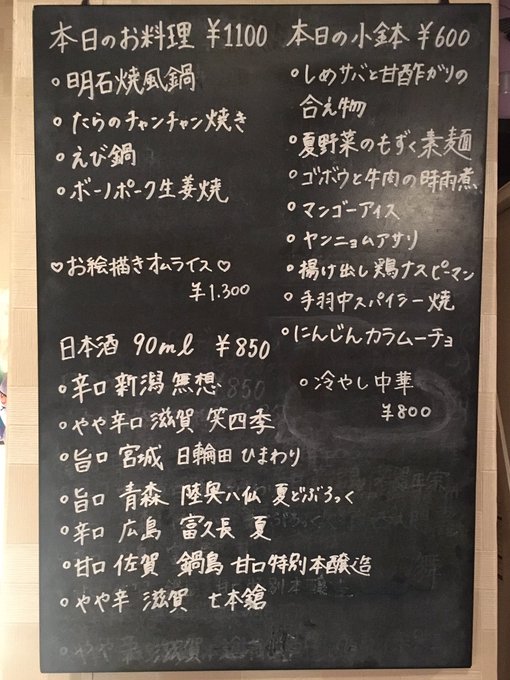 本日のお料理 ¥1100
○明石焼風鍋
○たらのチャンチャン焼き
○えび鍋
○ボーノポーク生姜焼
♡お絵描きオムライス♡
¥1.300
日本酒 90ml ¥850
○辛口 新潟 無想
○やや辛口 滋賀 笑四季
○旨口 宮城 日輪田 ひまわり
○旨口 青森 陸奥八仙 夏どぶろっく
○辛口 広島 富久長 夏
○甘口 佐賀 鍋島 甘口特別本醸造
○やや辛 滋賀 七本鎗
本日の小鉢 ¥600
○しめサバと甘酢ガリの
合え物
○夏野菜のもずく素麺
○ゴボウと牛肉の時雨煮
○マンゴーアイス
○ヤンニョムアサリ
○揚げ出し鶏ナスピーマン
○手羽中スパイシー焼
○にんじんカラムーチョ
○冷やし中華
¥800